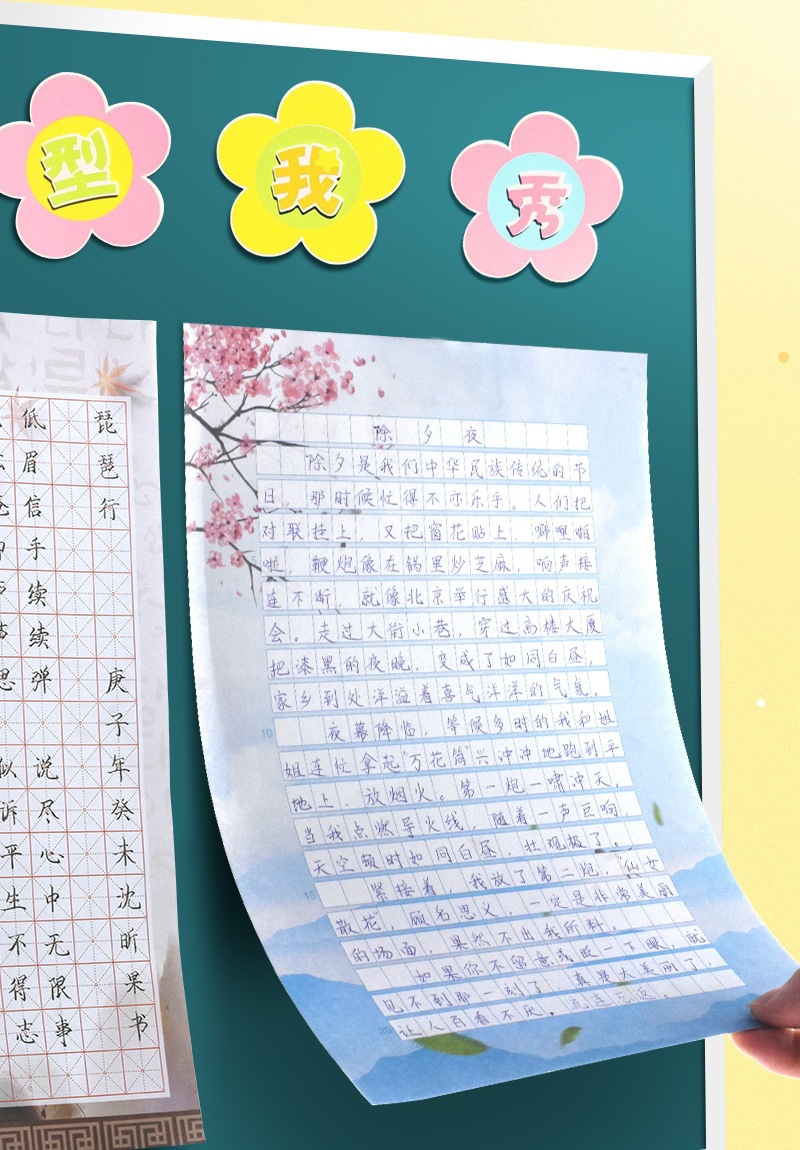 型我秀
琵琶行
庚子年癸未沈昕果书
低眉信手续续弹
说尽心中无限事
除夕夜
除夕是我们中华民族传统的节
日，那时候忙得不亦乐乎。人们把
对联挂上，又把窗花贴上，噼哩啪
啦，鞭炮像在锅里炒芝麻，响声接
连不断，就像北京举行盛大的庆祝
会。走过大街小巷，穿过高楼大厦
把漆黑的夜晚，变成了如同白昼，
家乡到处洋溢着喜气洋洋的气氛，
夜幕降临，等候多时的我和姐
姐连忙拿起"万花筒"兴冲冲地跑到平
地上，放烟火。第一炮一啸冲天，
当我点燃导火线，随着一声巨响，
天空顿时如同白昼，壮观极了。
紧接着，我放了第二炮，"仙女
散花"，顾名思义，一定是非常美丽
的场面，果然不出我所料。
如果你不留意或眨一下眼，就
见不到那一刻了，真是太美丽了，
让人百看不厌，流连忘返。
10
15
20